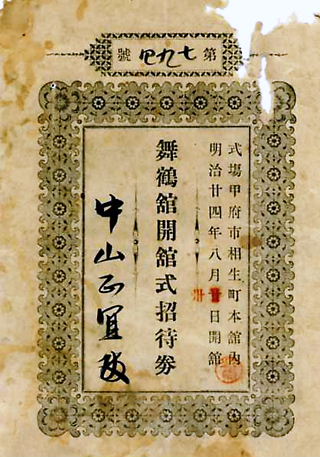 第七九四號
式場甲府市相生町本館內
明治廿四年八月廿日開館
舞鶴館開館式招待劵
中山正宜殿